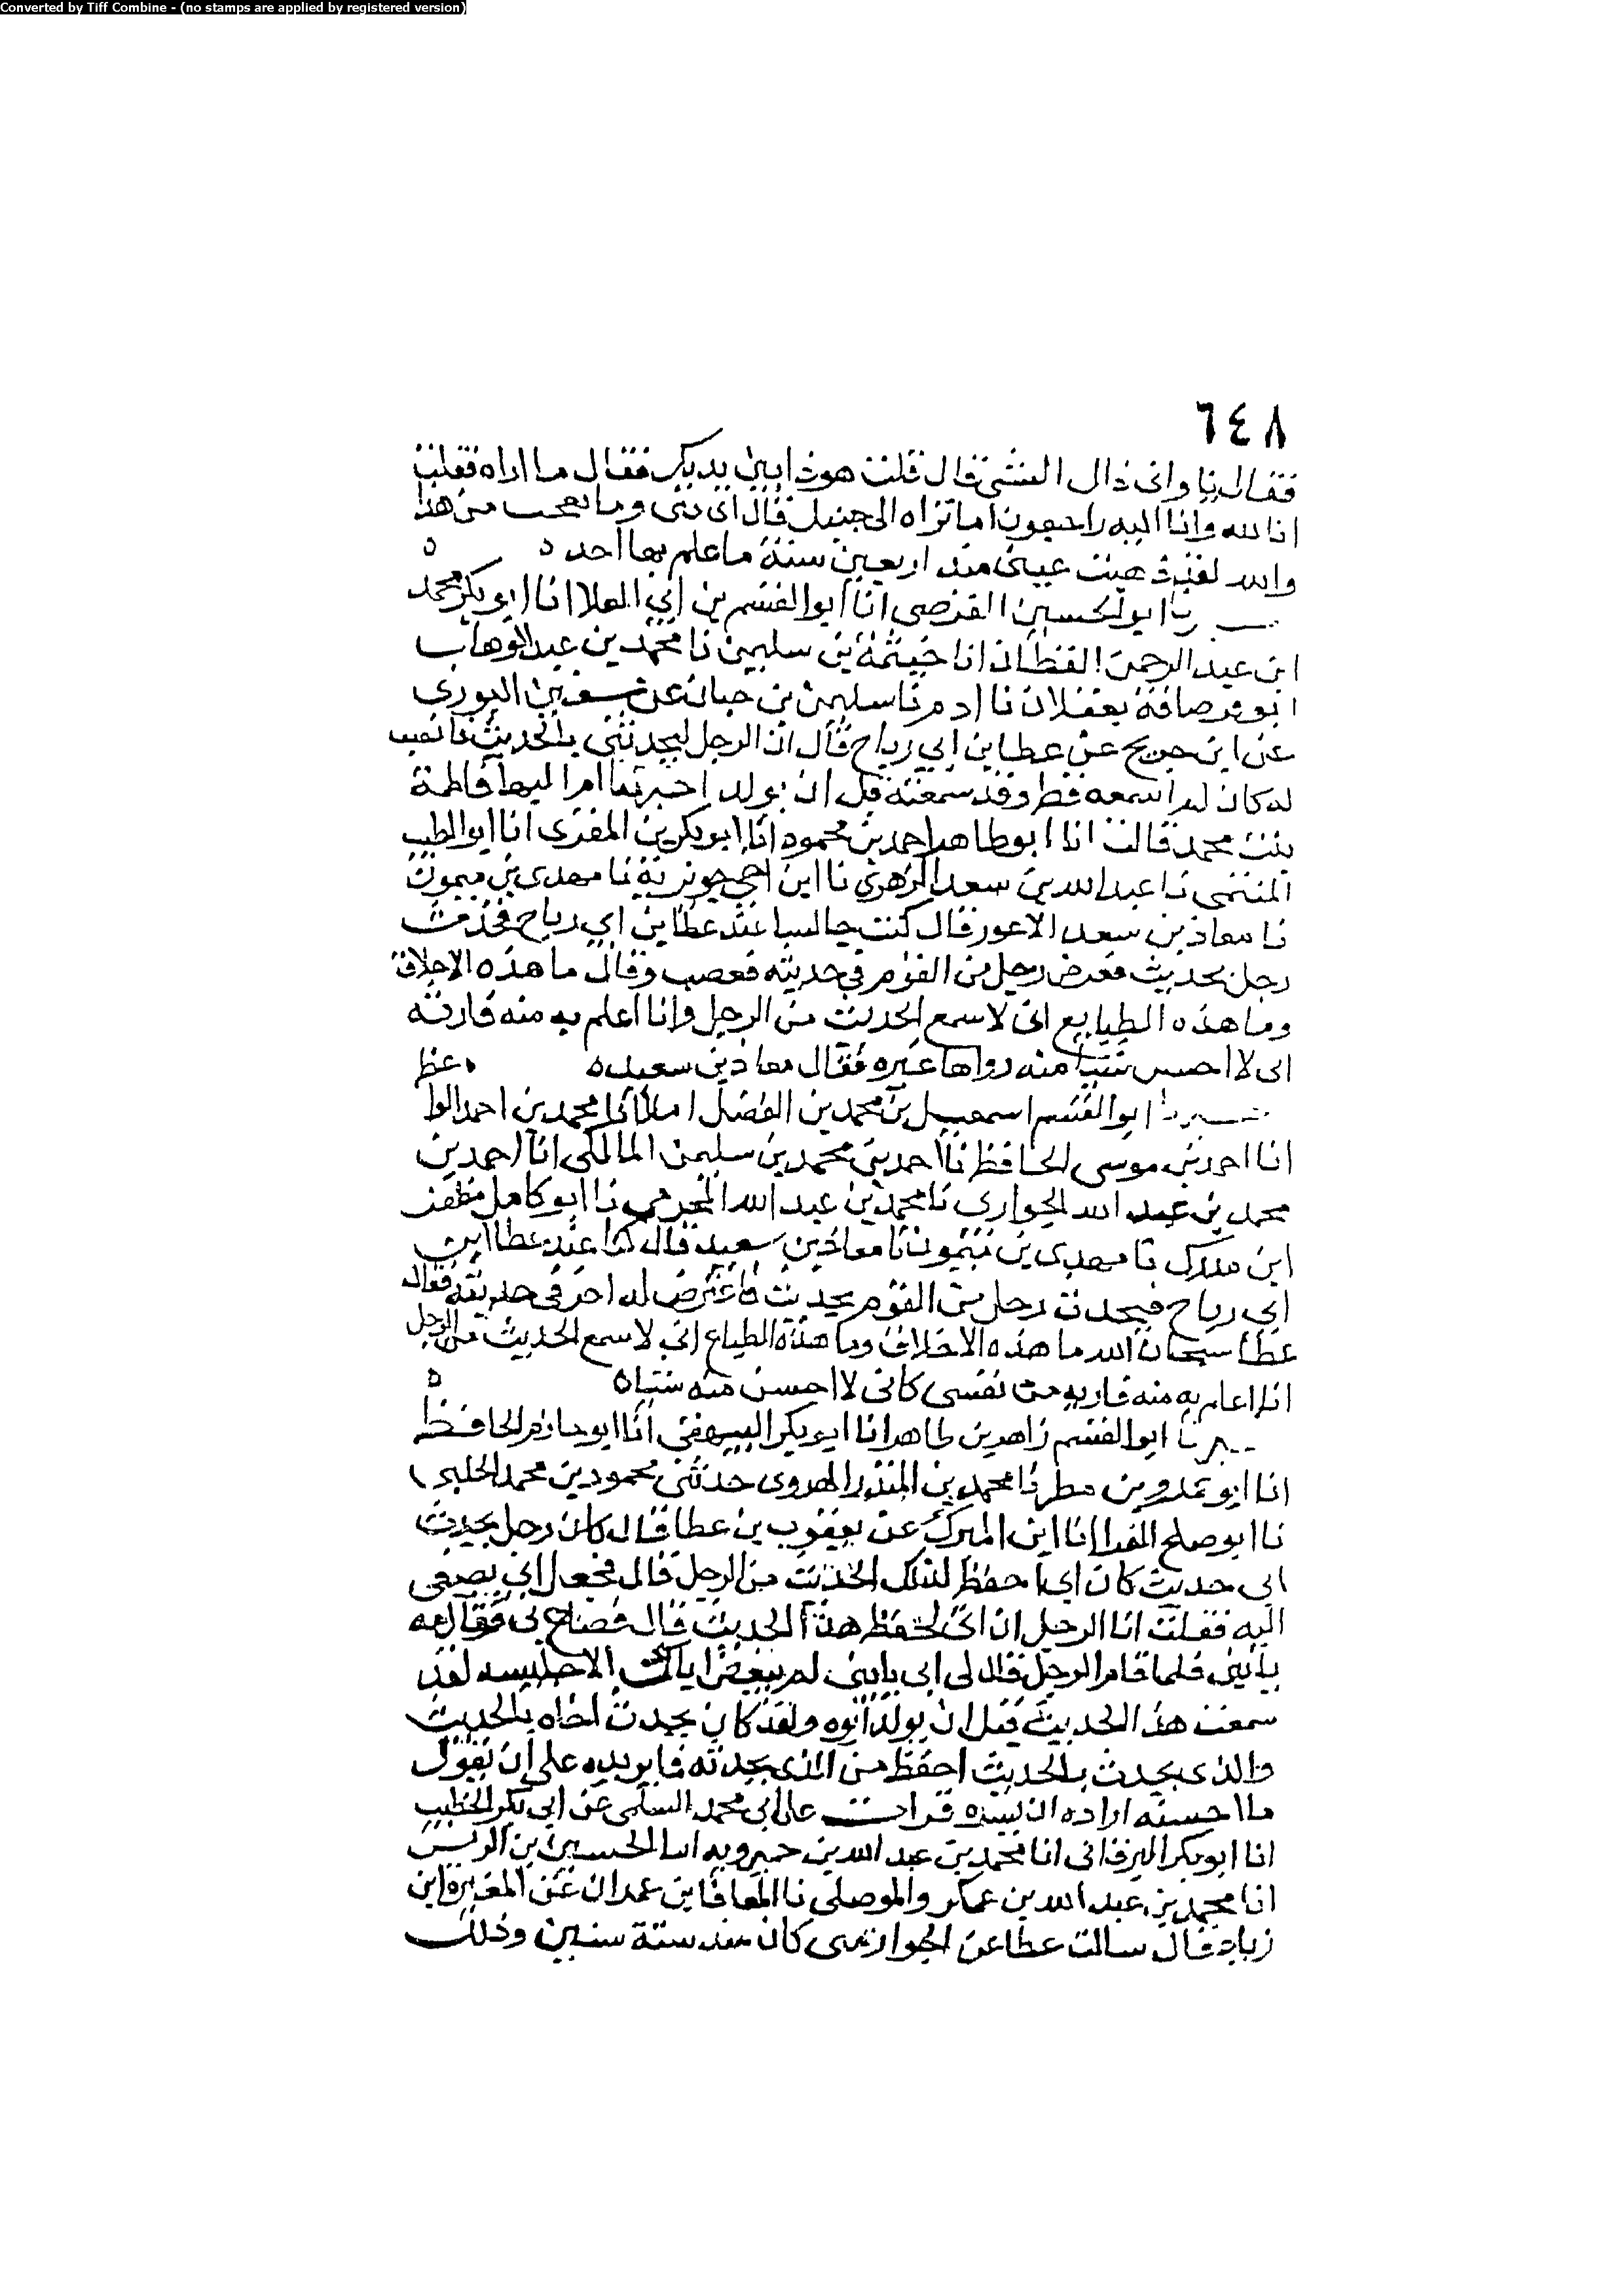 Converted by Tiff Combine - (no stamps are applied by registered version)
٦٤٨
فقال يا واني ذاك الشي قال قلت هوذا بين يديك فقال ما اراه فقلت
انا لله وانا اليه راجعون اما تراه الى جنبك قال اي بني وما تعجب من هذا
والله لقد ذهبت عيني منذ اربعين سنة ما علم بها احد ه ه
نا ابو الحسين الفرضي انا ابو القسم بن ابي العلا انا ابو بكر محمد
ابن عبد الرحمن القطان انا خيثمة بن سليمن نا محمد بن عبد الوهاب
ابو قرصافة بعسقلان نا ادم نا سليمن بن حبان عن سفين الثوري
عن ابن جريج عن عطا بن ابي رباح قال ان الرجل ليحدثني بالحديث فانصت
له كان لم اسمعه قط وقد سمعته قبل ان يولد اخبرتنا ام البها فاطمة
بنت محمد قالت انا ابو طاهر احمد بن محمود انا ابو بكر بن المقرى انا ابو الطيب
المنبجي نا عبد الله بن سعد الزهري نا ابن اخي جويرية نا مهدي بن ميمون
نا معاذ بن سعد الاعور قال كنت جالسا عند عطا بن ابي رباح فحدث
رجل بحديث فعرض رجل من القوم في حديثه فغضب وقال ما هذه الاخلاق
وما هذه الطبايع اني لاسمع الحديث من الرجل وانا اعلم به منه فاريه
اني لا احسن شيا منه رواها غيره فقال معاذ بن سعيد ه
ابو القسم اسمعيل بن محمد بن الفضل املا نا محمد بن احمد
انا احمد بن موسى الحافظ نا احمد بن محمد بن سليمن المالكي انا احمد بن
محمد بن عبد الله الجواري نا محمد بن عبد الله المخرمي نا ابو كامل مظفر
ابن مدرك نا مهدي بن ميمون نا معاذ بن سعيد قال كنا عند عطا ابن
ابي رباح فيحدث رجل من القوم بحديث فاعترض له اخر في حديثه فقال
عطا سبحان الله ما هذه الاخلاق وما هذه الطباع اني لاسمع الحديث من الرجل
انا اعلم به منه فاريه من نفسي كاني لا احسن منه شيا ه ه
نا ابو القسم زاهر بن طاهر انا ابو بكر البيهقي انا ابو حازم الحافظ
انا ابو عمرو بن مطر نا محمد بن المنذر الهروي حدثني محمود بن محمد الحلبي
نا ابو صلح الفرا انا ابن المبرك عن يعقوب بن عطا قال كان رجل يحدث
ابي حديث كان ابي احفظ لذلك الحديث من الرجل قال فجعل ابي يصغي
اليه فقلت انا الرجل ان ابي لحفظ هذا الحديث قال فصاح بي
يا بني فلما قام الرجل قال لي ابي يا بني لم تبغض اباك الا جليسه لقد
سمعت هذا الحديث قبل ان يولد ابوه ولقد كان يحدث اخاه بالحديث
والذي يحدث بالحديث احفظ من الذي يحدثه فما يزيده على ان يقول
ما احسنه اراده ان يسره قرات على ابي محمد السلمي عن ابي بكر الخطيب
انا ابو بكر البرقاني انا محمد بن عبد الله بن خميرويه انا الحسين بن ادريس
انا محمد بن عبد الله بن عمار الموصلي نا المعافا بن عمران عن المغيرة ابن
زياد قال سالت عطا عن الجوار متى كان منذ ستة سنين وذلك